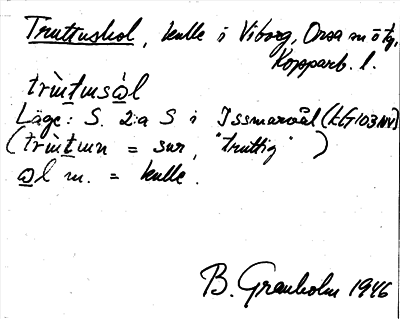 Truttushol, kulle i Viborg, Orsa sn ö tg,
Kopparb. l.
Läge: S. 2:a S i Issmarvål (LG103NV)
= sur, "truttig")
ol m. = kulle.
B. Granholm 1946